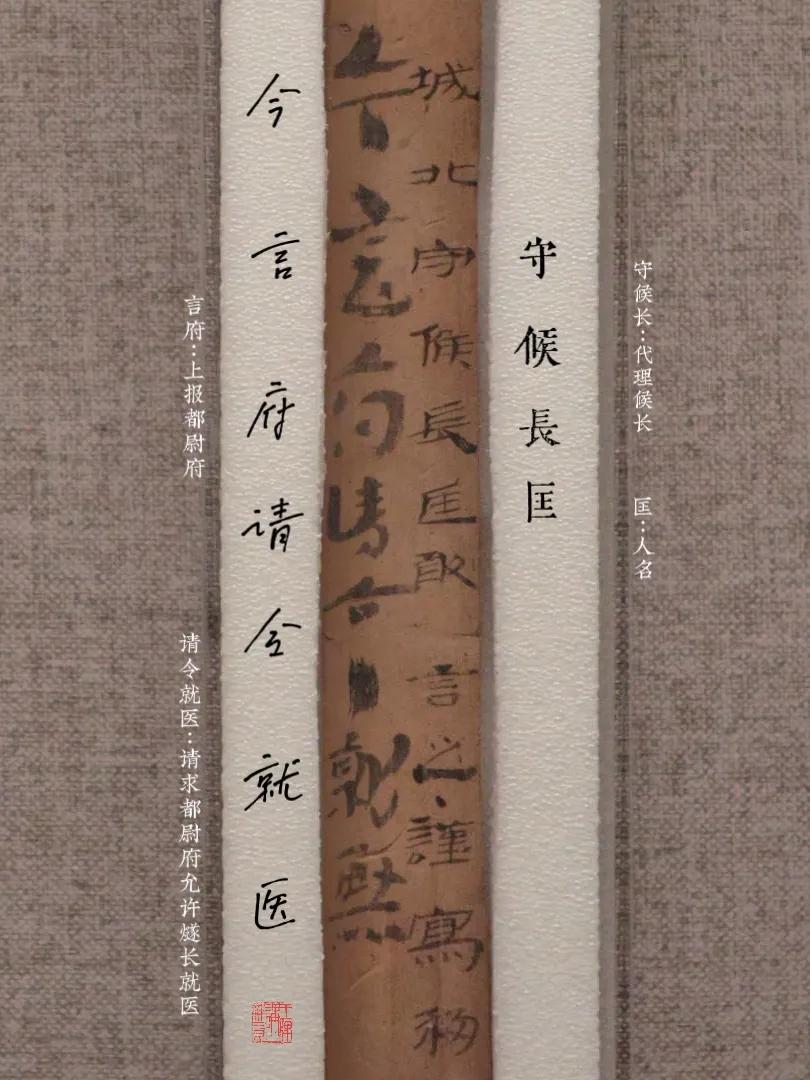 守候长：代理候长 匡：人名
守候長匡
城北守候長匡敢言之謹寫移
今言府請令就醫
今言府请令就医
言府：上报都尉府
请令就医：请求都尉府允许燧长就医